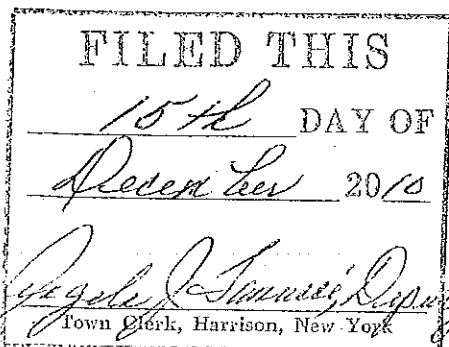 FILED THIS
15th DAY OF
December 2010
Angela J.
Town Clerk, Harrison, New York